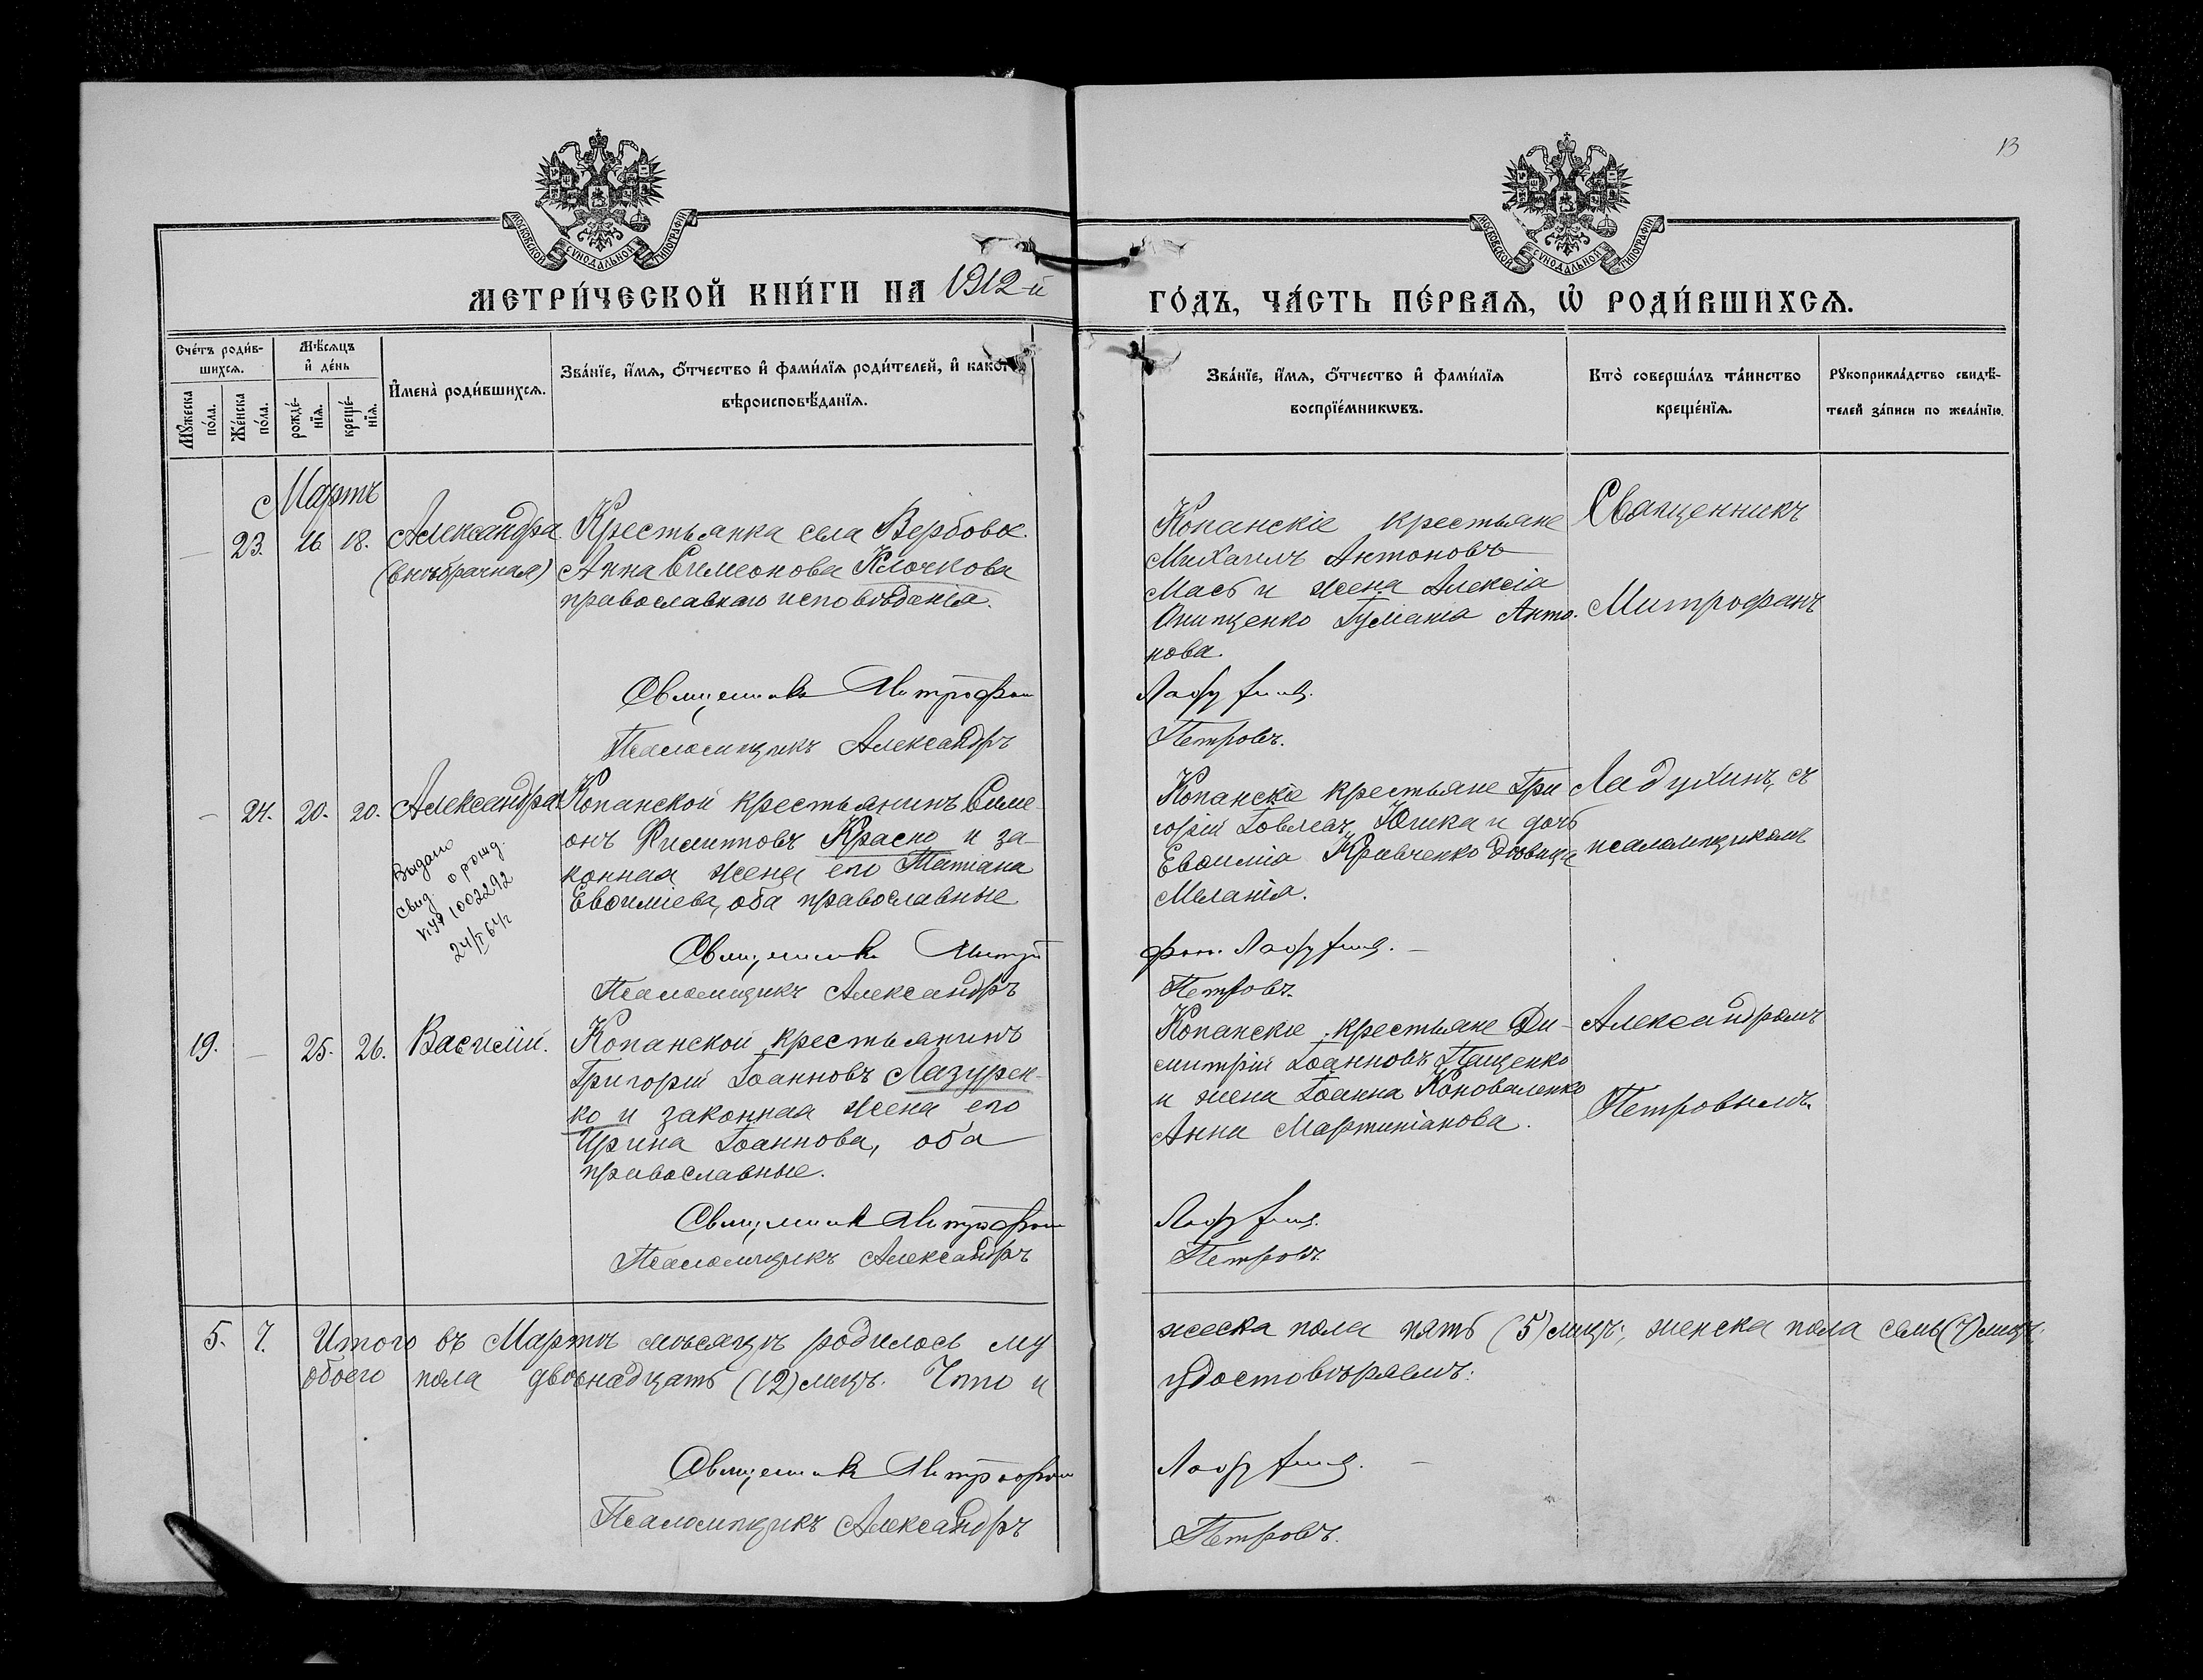 13
МОСКОВСКОЙ СѴНОДАЛЬНОЙ ТИПОГРАФІИ
МОСКОВСКОЙ СѴНОДАЛЬНОЙ ТИПОГРАФІИ
МЕТРИ́ЧЕСКОЙ КНИ́ГИ НА 1912-й
ГО́ДЪ, ЧА́СТЬ ПЕ́РВАѦ, Ѽ РОДИ́ВШИХСѦ.
Сче́тъ роди́в-
шихсѧ.
Мꙋжеска по́ла.
Же́нска по́ла.
Мѣ́сѧцъ и҆ де́нь
рожде́-
нїѧ.
креще́-
нїѧ.
И҆мена̀ роди́вшихсѧ.
Зва́нїе, и҆́мѧ, ѻ҆́тчество и҆ фами́лїѧ роди́телей, и҆ како́гѡ
вѣроисповѣ́данїѧ.
Зва́нїе, и҆́мѧ, ѻ҆́тчество и҆ фами́лїѧ
воспрїе́мникѡвъ.
Кто̀ соверша́лъ та́инство
креще́нїѧ.
Рꙋкоприкла́дство свидѣ́-
телей за́писи по жела́нїю.
Мартъ
— 23. 16 18. Александра
(внѣбрачная)
Крестьянка села Вербовое
Анна Симеонова Клочкова
православнаго исповѣданія.
Священникъ Митрофанъ
Псаломщикъ Александръ
Копанскіе крестьяне
Михаилъ Антоновъ
Мась и жена Алексія
Онищенко Іуліанія Анто-
нова.
Ладухинъ.
Петровъ.
Священникъ
Митрофанъ
Ладухинъ, съ
псаломщикомъ
Александромъ
Петровымъ.
— 24. 20. 20. Александра
Выдано
свид. о рожд.
24/I 64 г
Копанской крестьянинъ Симе-
онъ Филипповъ Красно и за-
конная жена его Татіана
Евѳиміева, оба православные
Священникъ Митро
Псаломщикъ Александръ
Копанскіе крестьяне Гри-
горій Іовлевъ и дочь
Евѳимія Кравченко дѣвица
Меланія.
фанъ Ладухинъ. —
Петровъ.
19. — 25. 26. Василій.
Копанской крестьянинъ
Григорій Іоанновъ Лазурен-
ко и законная жена его
Ирина Іоаннова, оба
православные.
Священникъ Митрофанъ
Псаломщикъ Александръ
Копанскіе крестьяне Ди-
митрій Іоанновъ Пащенко
и жена Іоанна Коноваленко
Анна Мартиніанова.
Ладухинъ.
Петровъ.
5. 7. Итого въ Мартѣ мѣсяцѣ родилось му
жеска пола пять (5) лицъ; женска пола семь (7) лицъ;
обоего пола двѣнадцать (12) лицъ. Что и
удостовѣряемъ:
Священникъ Митрофанъ
Ладухинъ. —
Псаломщикъ Александръ
Петровъ.